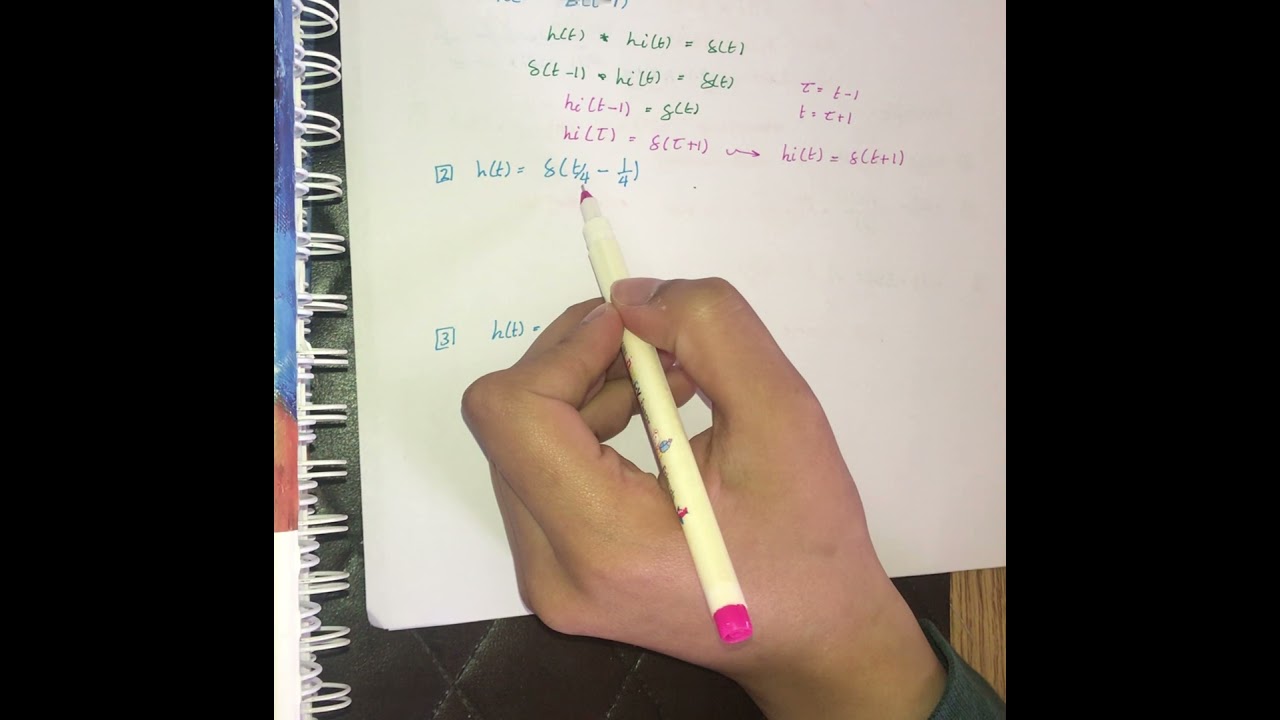 δ(t-1)
h(t) * hi(t) = δ(t)
δ(t-1) * hi(t) = δ(t)
hi(t-1) = δ(t)
τ = t-1
t = τ+1
hi(τ) = δ(τ+1) ⇝ hi(t) = δ(t+1)
2 h(t) = δ(t/4 - 1/4)
3 h(t) =